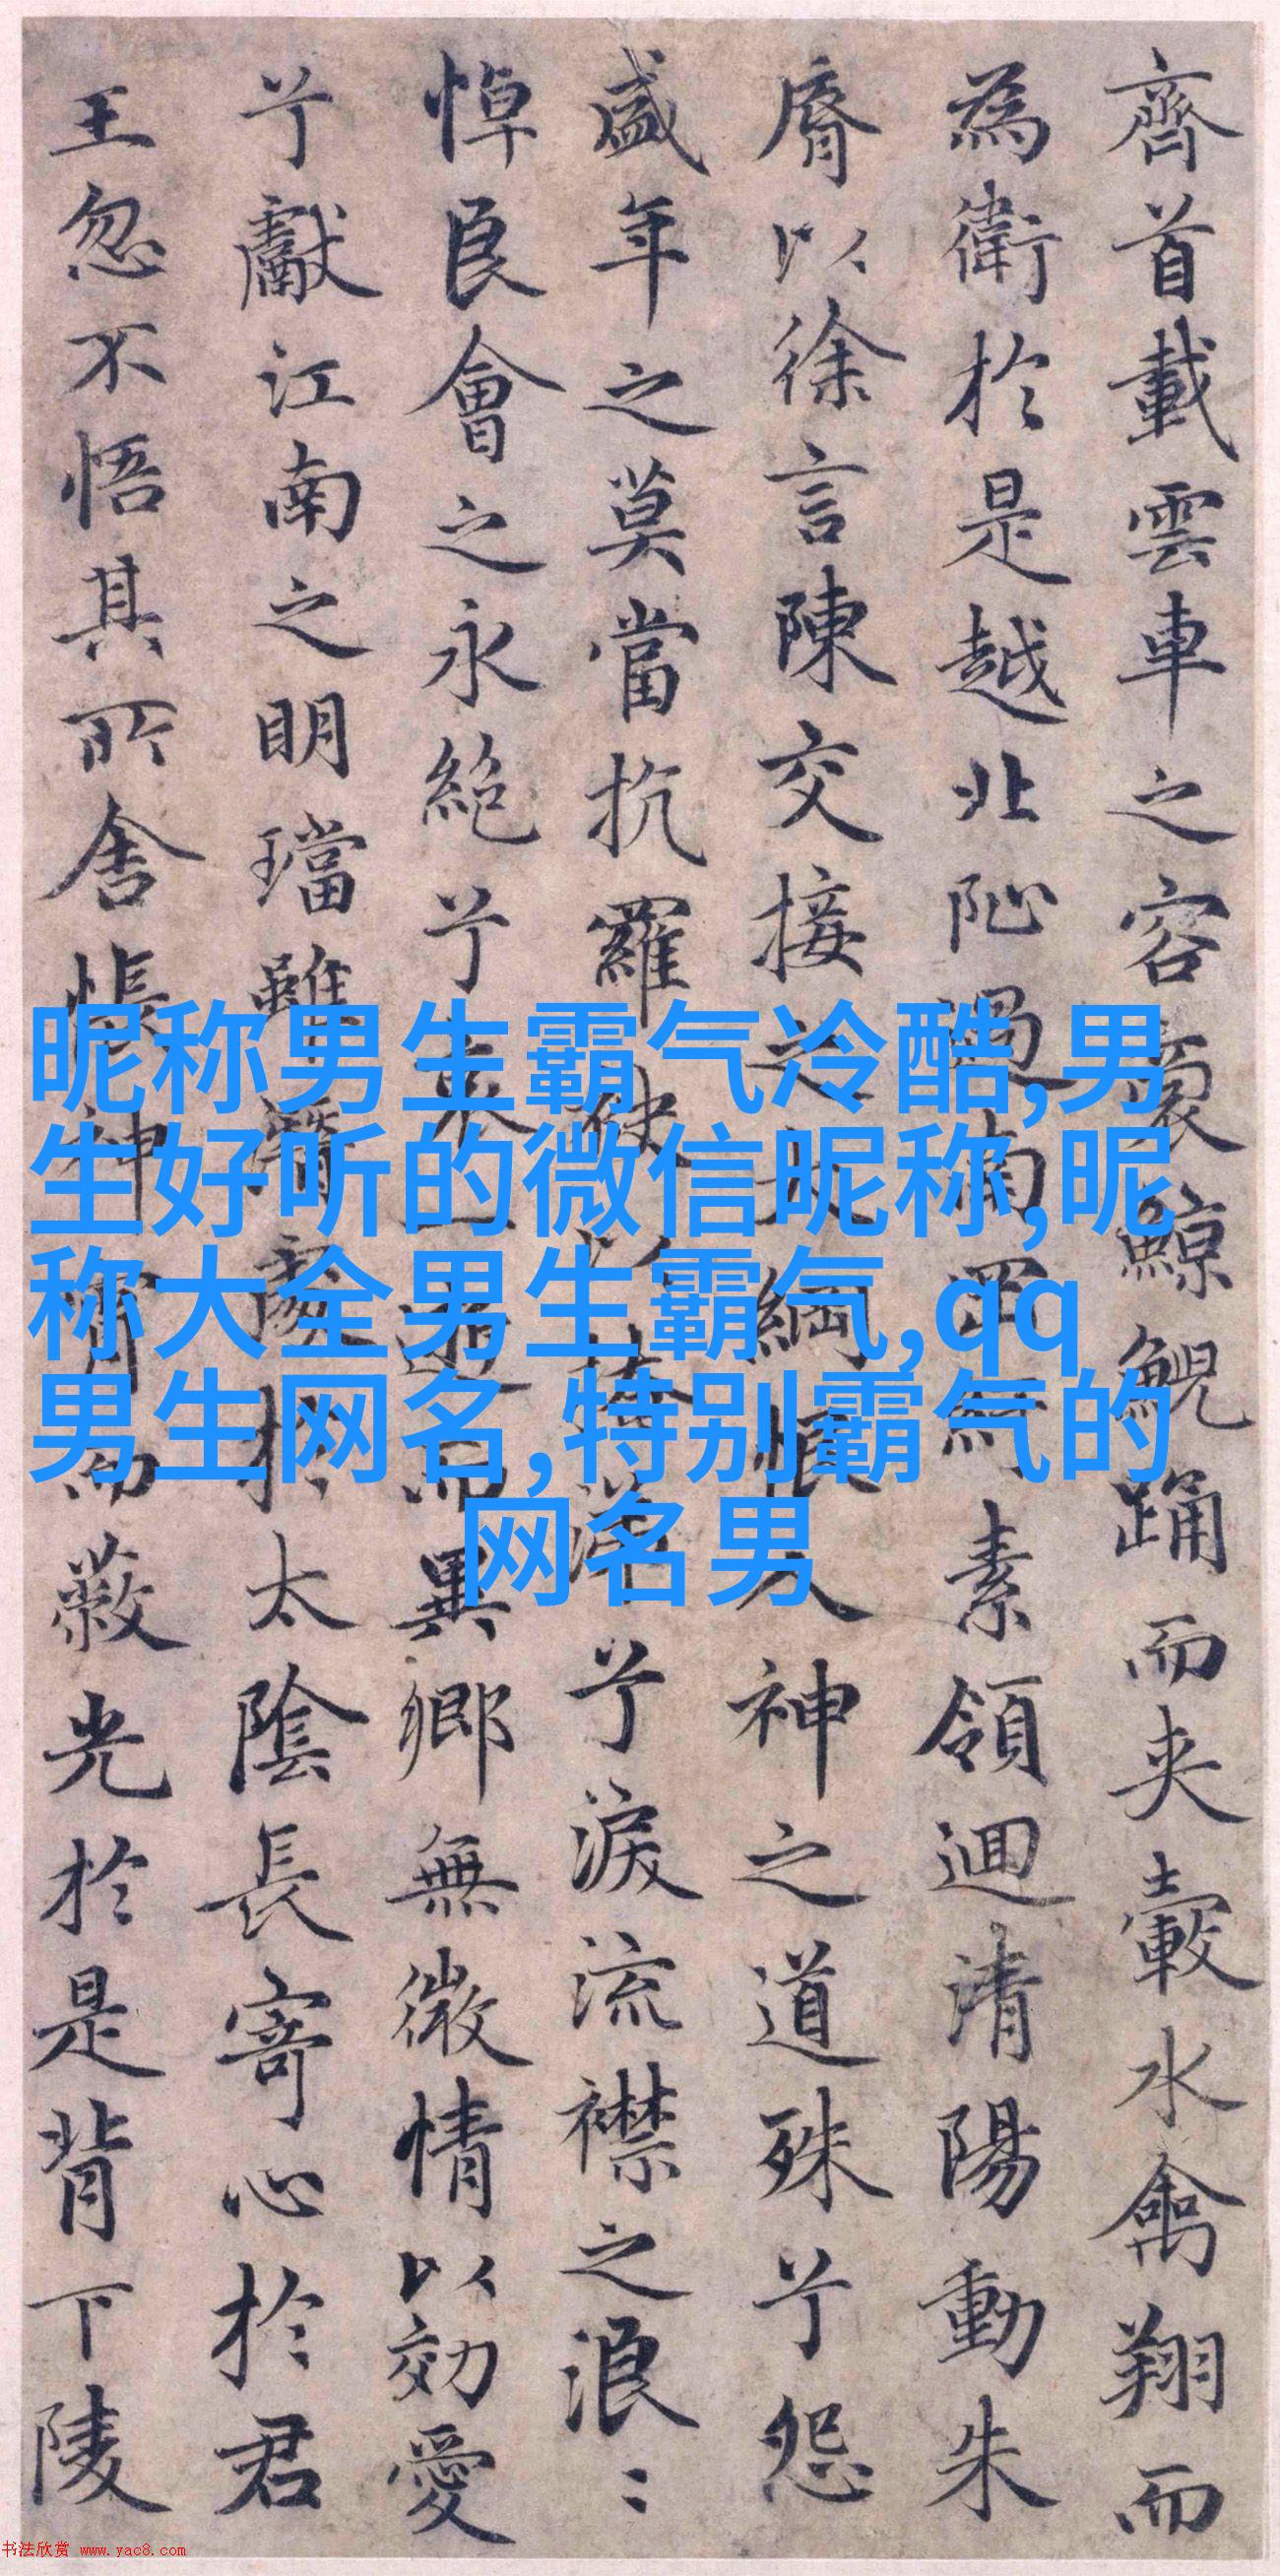 齊首載雲車之容裔鯨鯢踊而夾轂水禽翔而
為衛於是越北沚過南岡紆素領迴清陽動朱
脣以徐言陳交接之大綱恨人神之道殊兮怨
盛年之莫當抗羅袂以掩涕兮淚流襟之浪〻
悼良會之永絕兮哀一逝而異鄉無微情以効愛
兮獻江南之明璫雖潛處於太陰長寄心於君
王忽不悟其所舍悵神宵而蔽光於是背下陵
昵称男生霸气冷酷,男
生好听的微信昵称,昵
称大全男生霸气,qq
男生网名,特别霸气的
网名男
书法欣赏 www.yac8.com